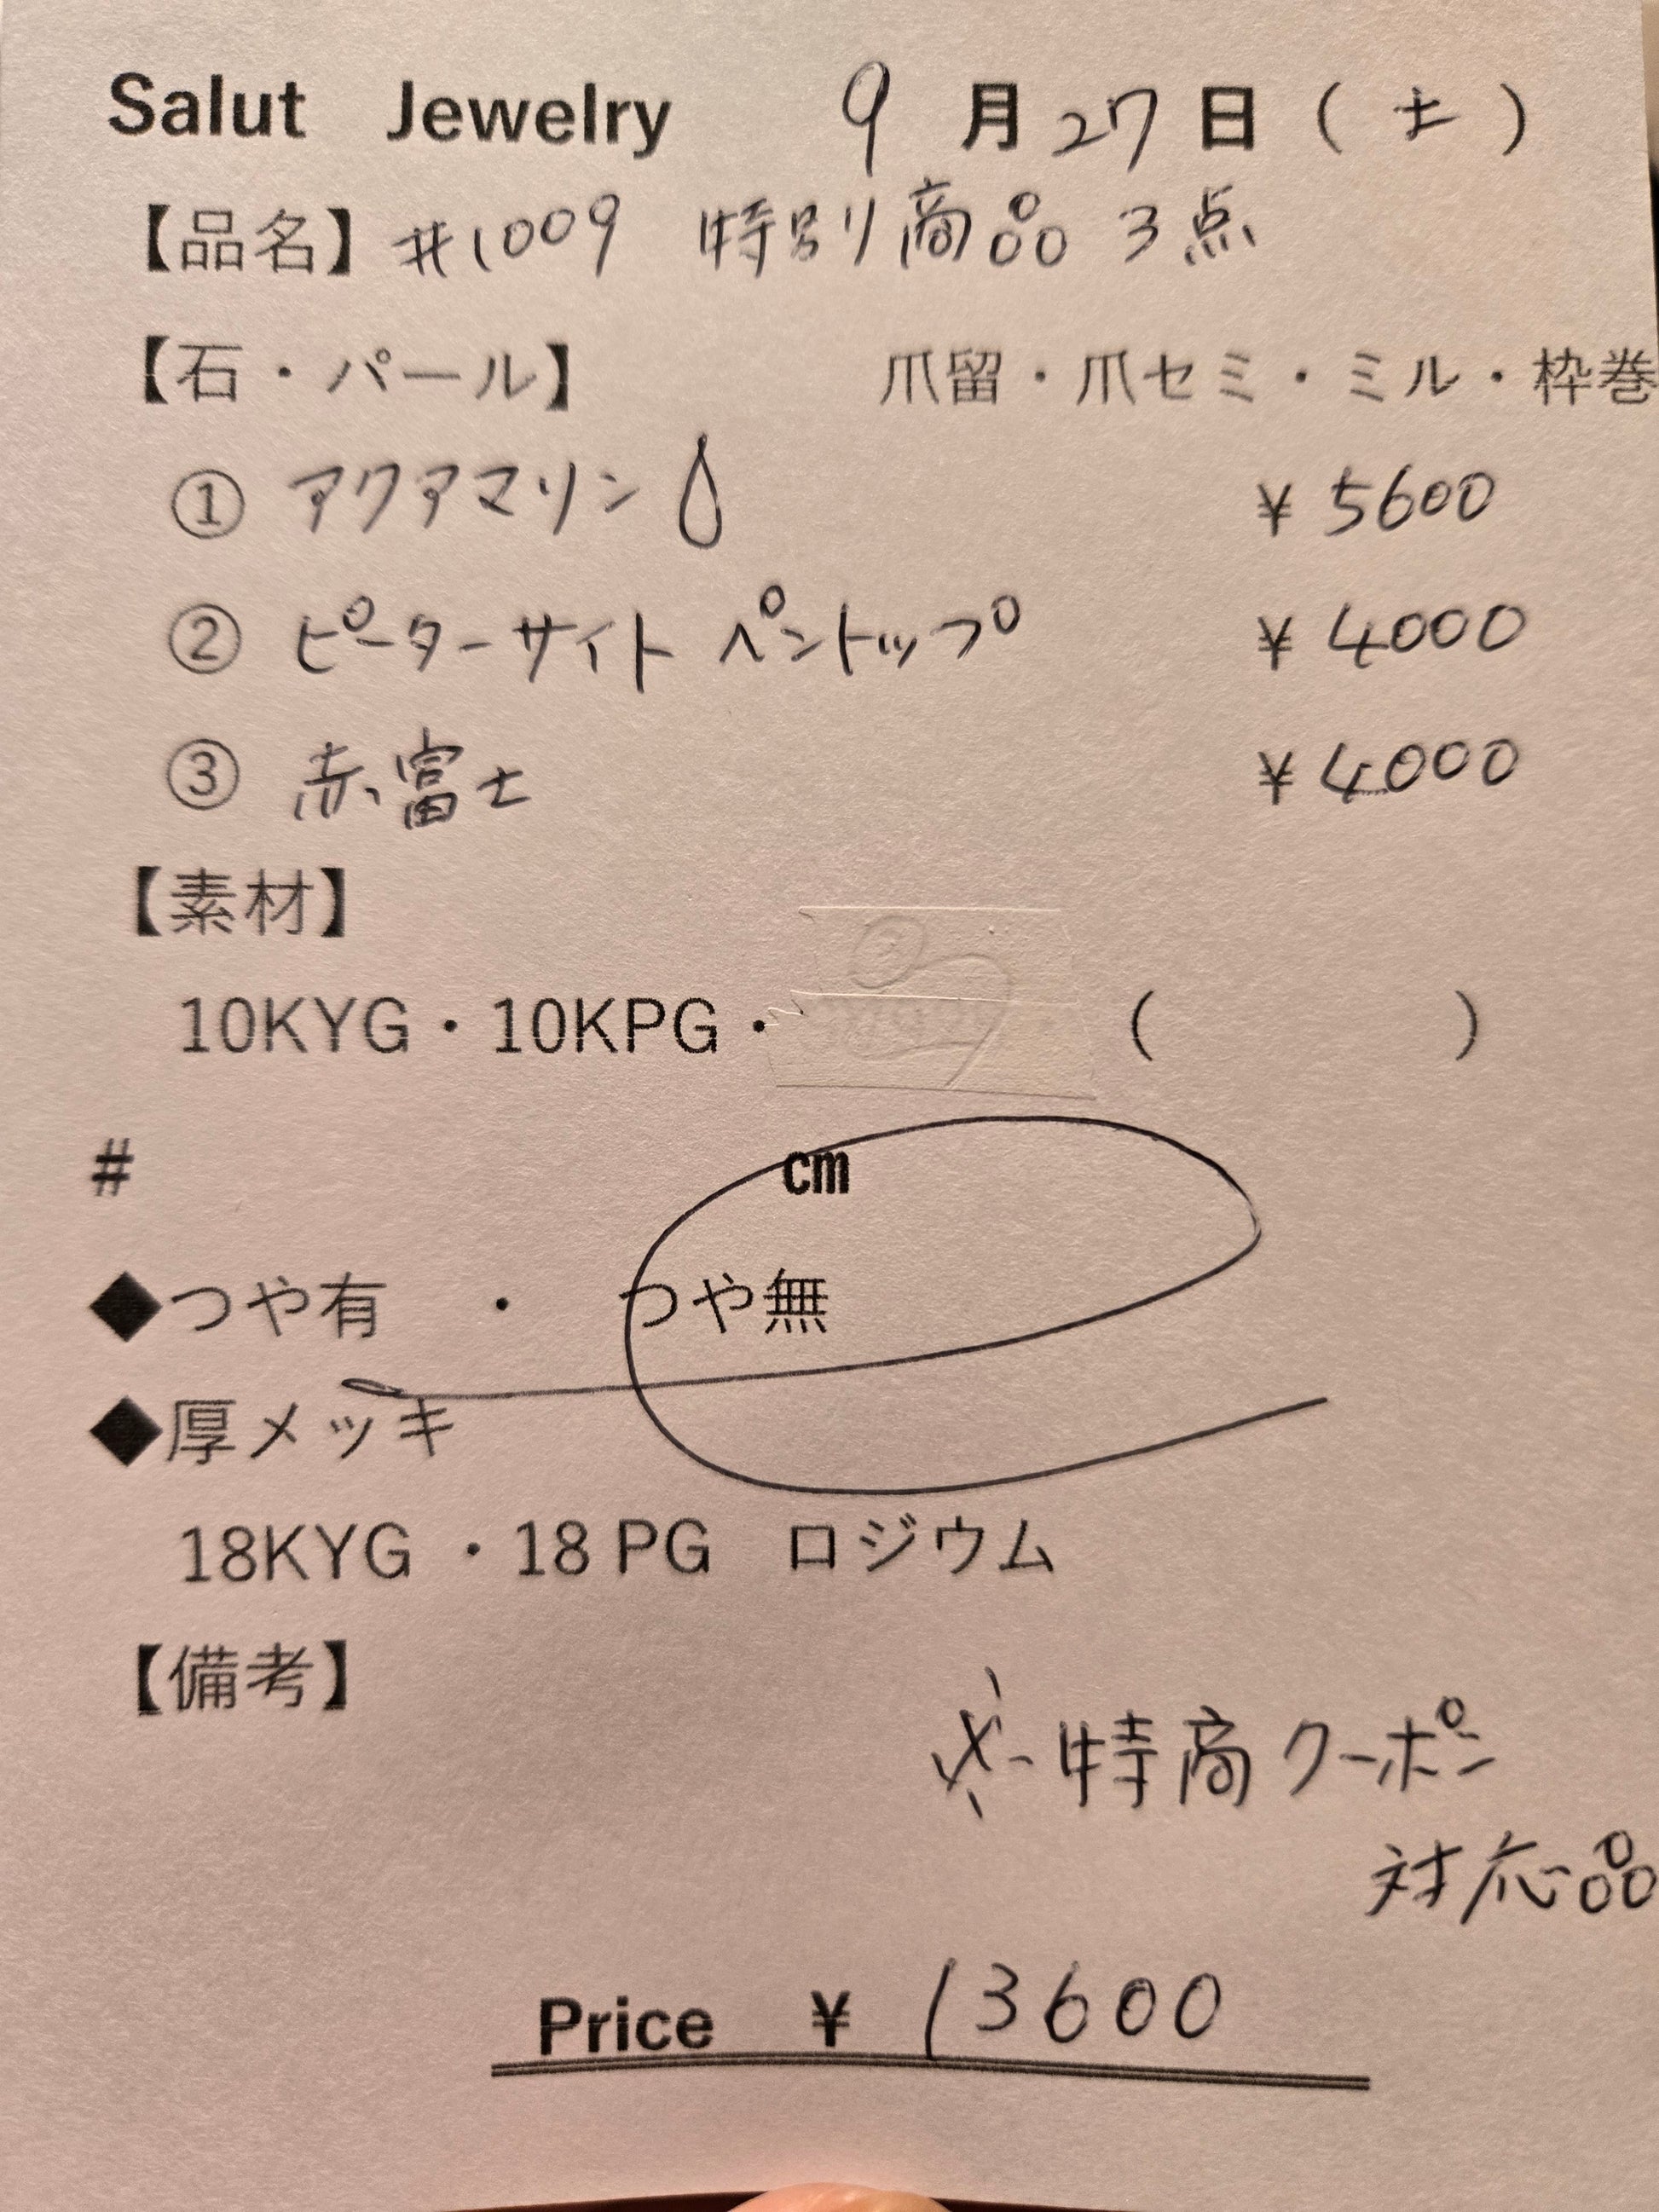 Salut Jewelry 9月27日(土)
【品名】#1009 特別商品 3点
【石・パール】 爪留・爪セミ・ミル・枠巻
① アクアマリン ¥5600
② ピーターサイト ペントップ ¥4000
③ 赤富士 ¥4000
【素材】
10KYG・10KPG・ ( )
# cm
◆つや有 ・ つや無
◆厚メッキ
18KYG ・18 PG ロジウム
【備考】
特商クーポン
対応品
Price ¥ 13600